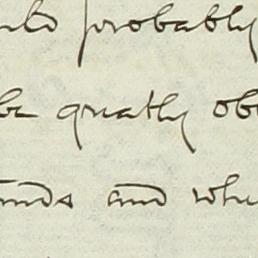 uld probably
be greatly ob
ands and whe